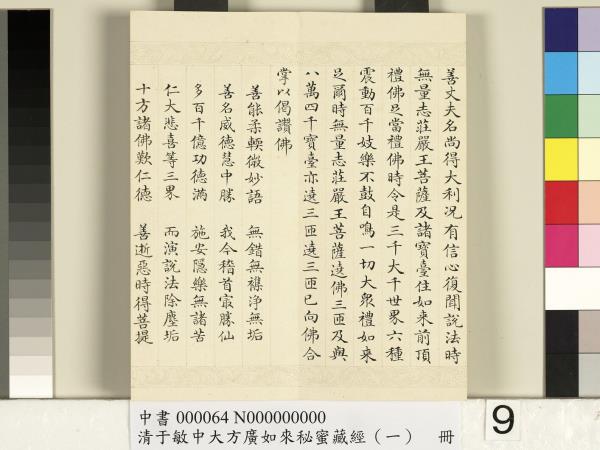 善丈夫名尚得大利况有信心復聞說法時
無量志莊嚴王菩薩及諸寶臺住如来前頂
禮佛足當禮佛時令是三千大千世界六種
震動百千妓樂不鼓自鳴一切大衆禮如来
足爾時無量志莊嚴王菩薩遶佛三匝及與
八萬四千寶臺亦遶三匝遶三匝已向佛合
掌以偈讚佛
善能柔輭微妙語 無錯無襍淨無垢
善名威德慧中勝 我今稽首冣勝仙
多百千億功德滿 施安隱樂無諸苦
仁大悲喜等三界 而演說法除塵垢
十方諸佛歎仁德 善逝惡時得菩提
中書 000064 N000000000
清于敏中大方廣如來秘蜜藏經（一） 冊
9